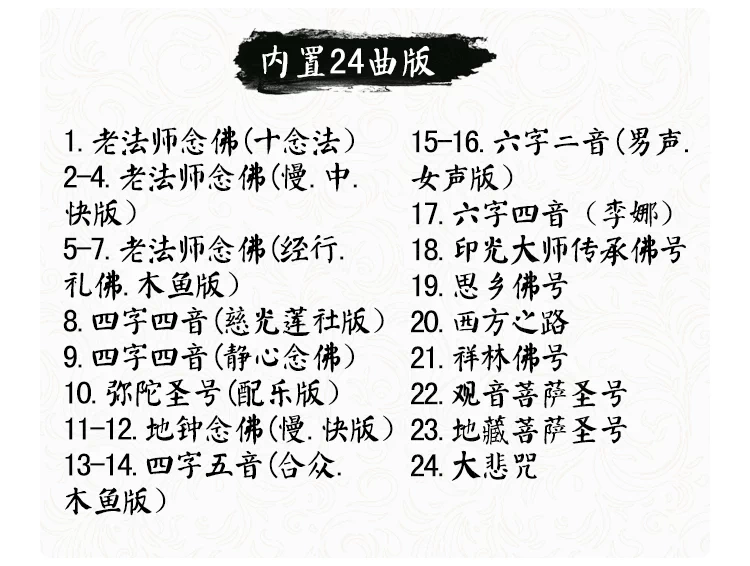 内置24曲版
1.老法师念佛(十念法）
2-4.老法师念佛(慢.中.
快版）
5-7.老法师念佛(经行.
礼佛.木鱼版）
8.四字四音(慈光莲社版）
9.四字四音(静心念佛）
10.弥陀圣号(配乐版）
11-12.地钟念佛(慢.快版）
13-14.四字五音(合众.
木鱼版）
15-16.六字二音(男声.
女声版）
17.六字四音（李娜）
18.印光大师传承佛号
19.思乡佛号
20.西方之路
21.祥林佛号
22.观音菩萨圣号
23.地藏菩萨圣号
24.大悲咒